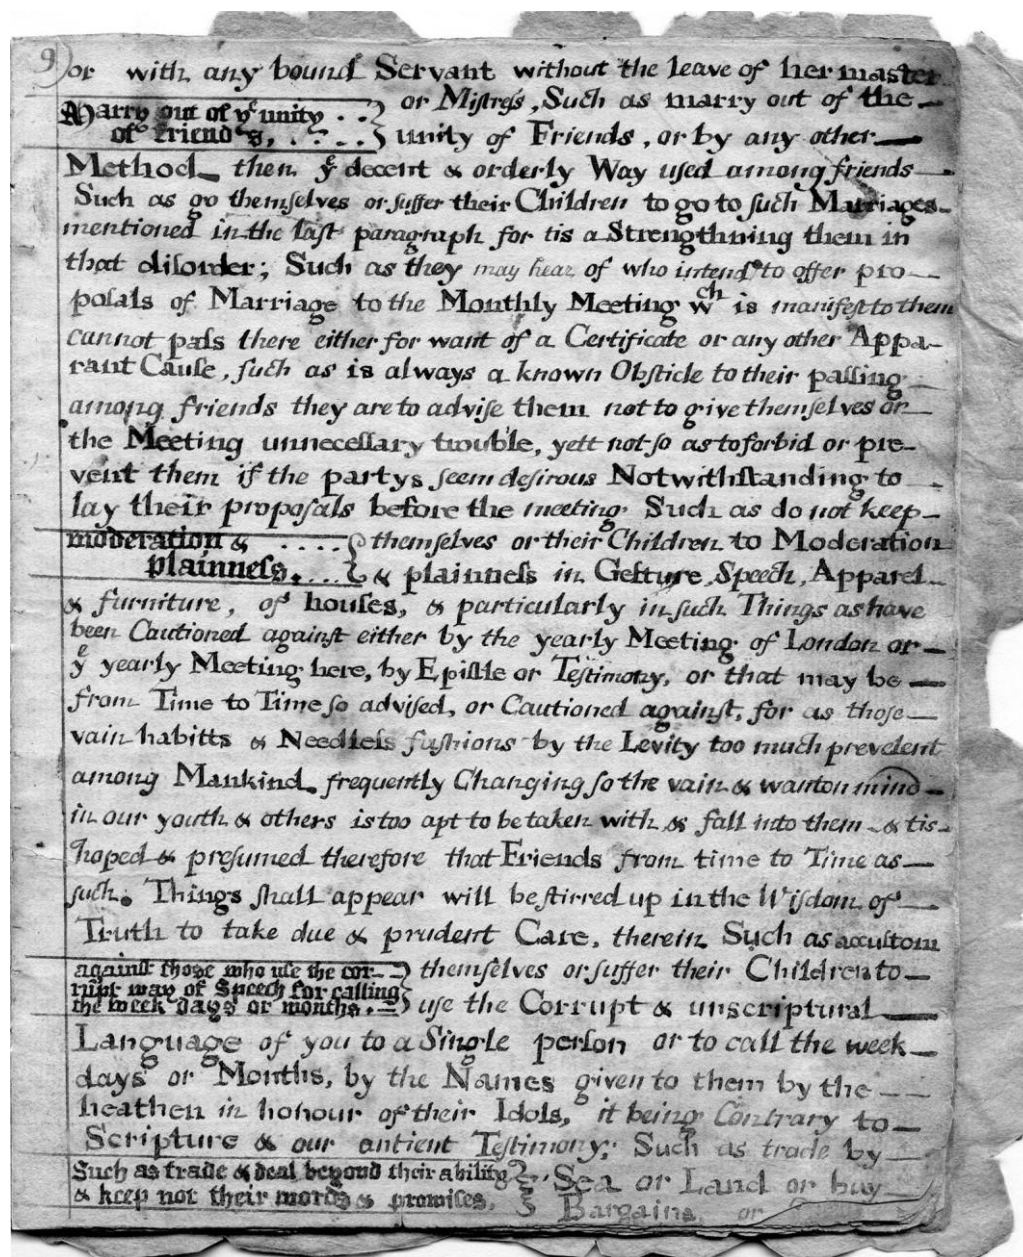 9)
or with any bound Servant without the leave of her master
or Mistress, Such as marry out of the
Marry out of ye unity
of friends,
unity of Friends, or by any other
Method then ye decent & orderly Way used among friends
Such as go themselves or suffer their Children to go to such Marriages
mentioned in the last paragraph for tis a Strengthning them in
that disorder; Such as they may hear of who intend to offer pro-
posals of Marriage to the Monthly Meeting wch is manifest to them
cannot pass there either for want of a Certificate or any other Appa-
rant Cause, such as is always a known Obsticle to their passing
among friends they are to advise them not to give themselves or
the Meeting unnecessary trouble, yett not so as to forbid or pre-
vent them if the partys seem desirous Notwithstanding to
lay their proposals before the meeting Such as do not keep
moderation &
plainness.
themselves or their Children to Moderation
& plainness in Gesture, Speech, Apparel
& furniture, of houses, & particularly in such Things as have
been Cautioned against either by the yearly Meeting of London or
ye yearly Meeting here, by Epistle or Testimony, or that may be
from Time to Time so advised, or Cautioned against, for as those
vain habitts & Needless fashions by the Levity too much prevelent
among Mankind frequently Changing so the vain & wanton mind
in our youth & others is too apt to be taken with & fall into them & tis
hoped & presumed therefore that Friends from time to Time as
such Things shall appear will be stirred up in the Wisdom of
Truth to take due & prudent Care, therein Such as accustom
against those who use the cor-
rupt way of Speech for calling
the week days or months.
themselves or suffer their Children to
use the Corrupt & unscriptural
Language of you to a Single person or to call the week
days or Months, by the Names given to them by the
heathen in honour of their Idols, it being Contrary to
Scripture & our antient Testimony; Such as trade by
Such as trade & deal beyond their ability
& keep not their words & promises.
Sea or Land or buy
Bargains, or